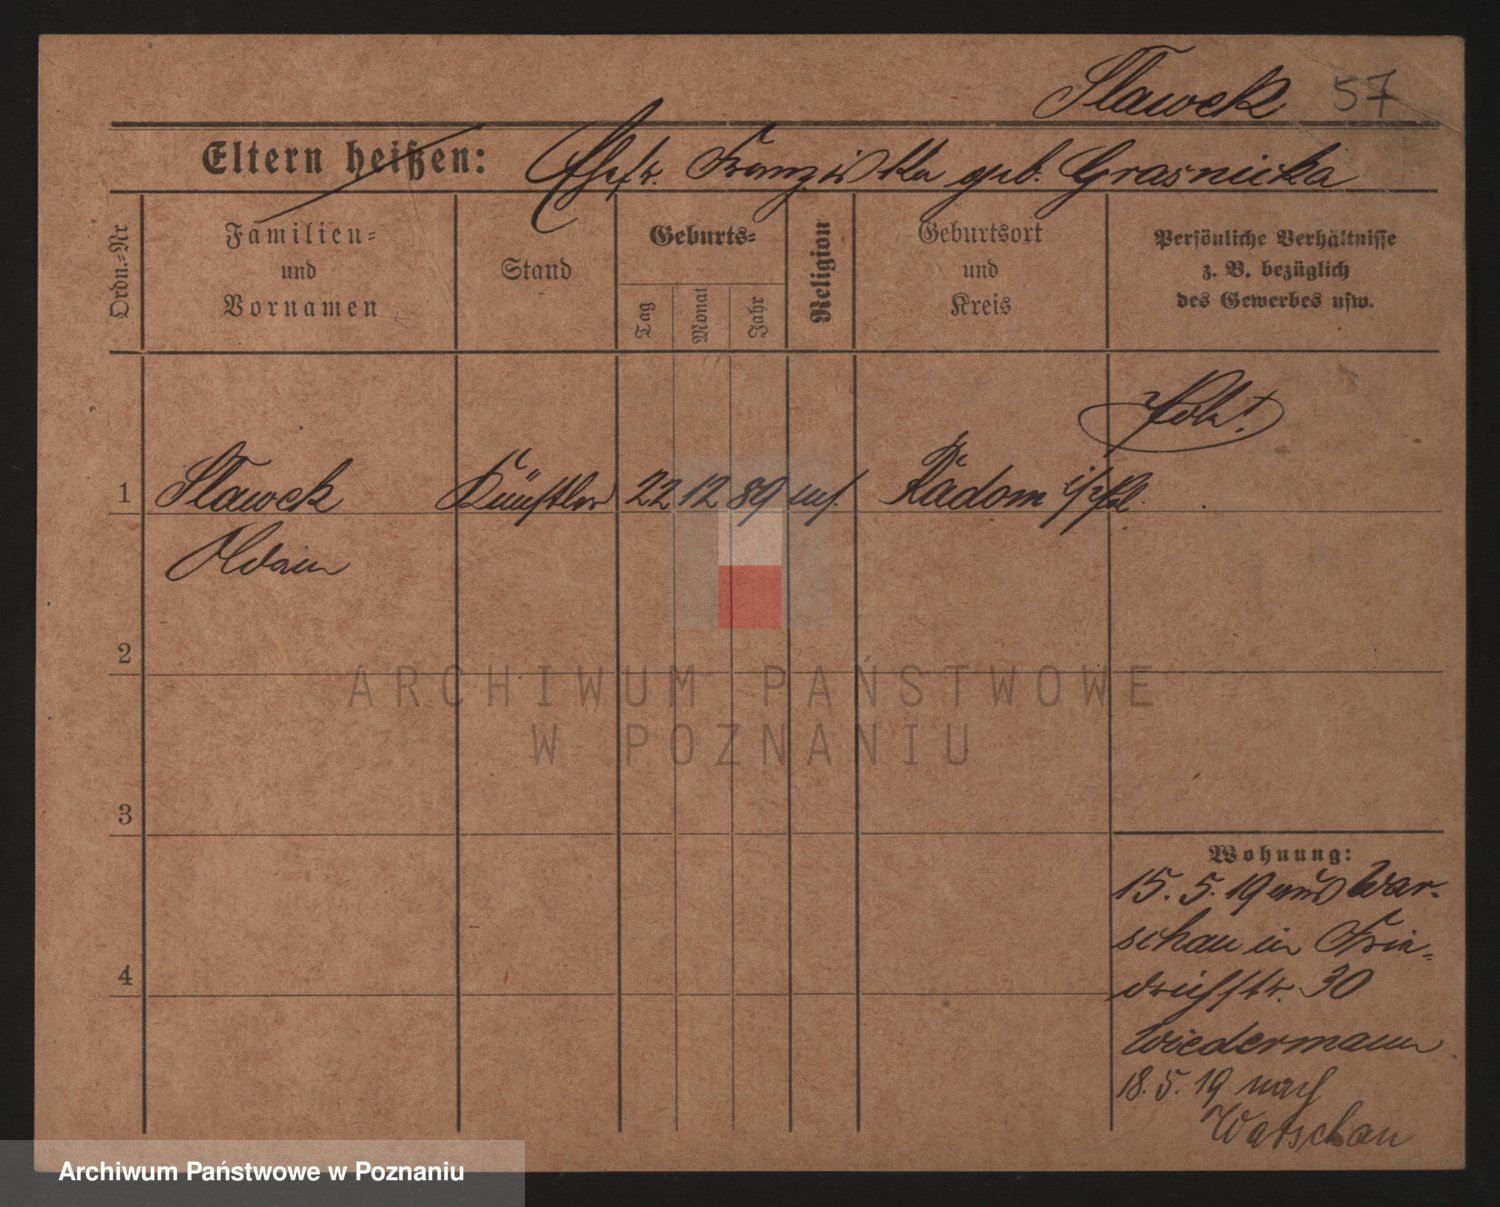 Slawek 57
Eltern heißen: Ehefr. Franziska geb. Grasnicka
Ordn.=Nr
Familien=
und
Vornamen
Stand
Geburts=
Tag
Monat
Jahr
Religion
Geburtsort
und
Kreis
Persönliche Verhältnisse
z. B. bezüglich
des Gewerbes usw.
Pole!
1 Slawek Künstler 22 12 89 Radom i/Pol.
Adam
2
3
4
Wohnung:
15. 5. 19 aus War-
schau in Frie-
drichstr. 30
Wiedermann
18. 5. 19 nach
Warschau
ARCHIWUM PAŃSTWOWE
W POZNANIU
Archiwum Państwowe w Poznaniu